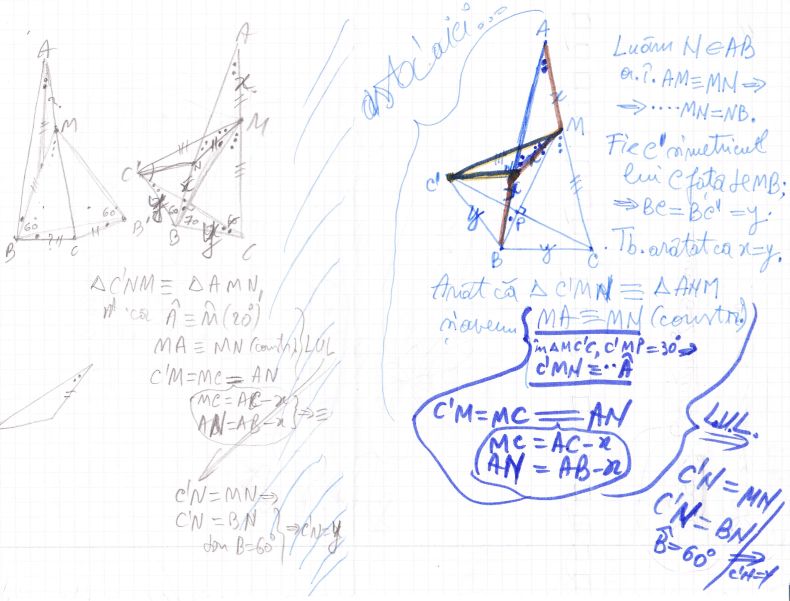 A
M
B
C
B'
60
60
A
x
M
C'
N
x
y
B
60
70
y
60
C
△C'NM ≡ △AMN,
Â ≡ M̂ (20°)
MA ≡ MN (constr.)
LUL
C'M = MC = AN
MC = AC - x
AN = AB - x
⇒ ≡
C'N = MN ⇒
C'N = BN
B = 60°
⇒ C'N = y
asta aici...
A
x
M
x
x
C'
y
P
B
y
C
Luăm N∈AB
a.î. AM≡MN ⇒
⇒ ....MN=NB.
Fie C' simetricul
lui C față de MB;
⇒ BC = BC' = y.
Tb. arătat că x=y.
Arăt că △C'MN ≡ △ANM
n'avem
MA ≡ MN (constr.)
în △MC'C, C'MP=30° ⇒
C'MN ≡ ..Â
C'M = MC = AN
MC = AC - x
AN = AB - x
L.U.L.
⇒
C'N = MN
C'N = BN
B̂ = 60°
⇒
C'N=y